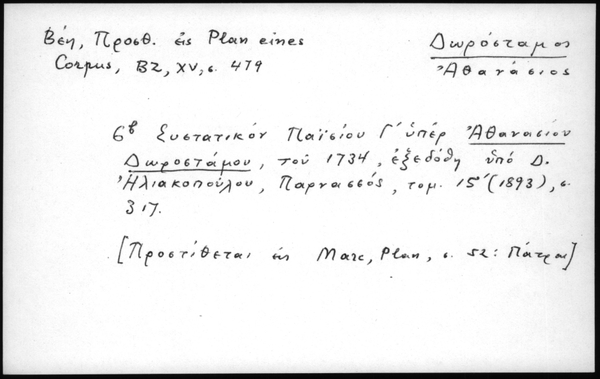 Βέη, Προσθ. εἰς Plan eines
Corpus, BZ, XV, σ. 479
Δωρόσταμος
Ἀθανάσιος
6β Συστατικόν Παϊσίου Γ΄ ὑπέρ Ἀθανασίου
Δωροστάμου, τοῦ 1734, ἐξεδόθη ὑπό Δ.
Ἠλιακοπούλου, Παρνασσός, τομ. 15΄ (1893), σ.
317.
[Προστίθεται εἰς Marc, Plan, σ. 52: Πάτραι]